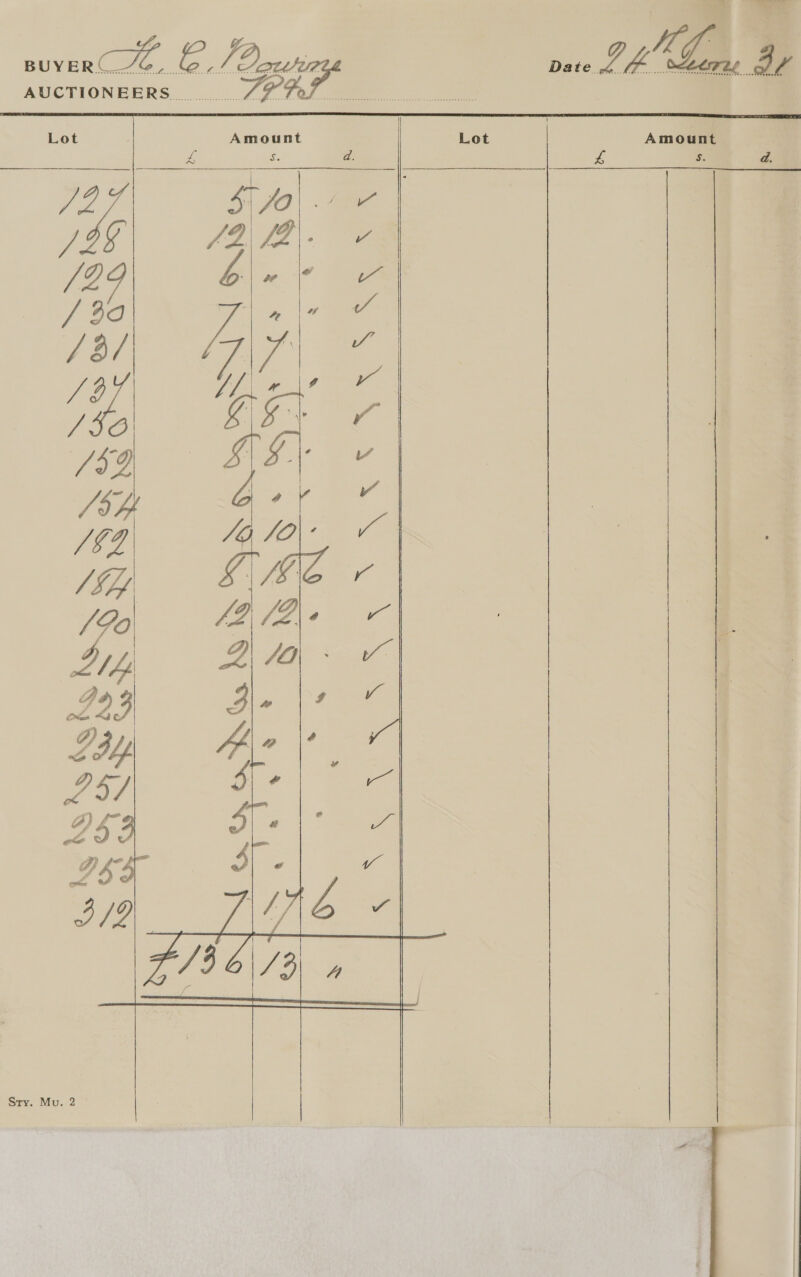 BUYER H. C. Downing Date 24th June 31
AUCTIONEERS
Lot Amount Lot Amount
£ s. d. £ s. d.
127 5 10 . ✓
128 12 12 . ✓
129 6 " " ✓
130 7 " " ✓
131 7 7 ✓
137 11 " " ✓
150 8 8 - ✓
152 8 8 - ✓
154 6 " " ✓
182 10 10 - ✓
184 8 18 6 ✓
190 12 12 " ✓
214 2 10 - ✓
223 3 " " ✓
234 4 " " ✓
251 5 " " ✓
253 5 " " ✓
255 5 " ✓
312 7 17 6 ✓
£136 13 "
Sty. Mu. 2